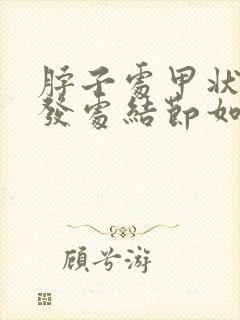 脖子處甲狀
發處結節如
顧兮游